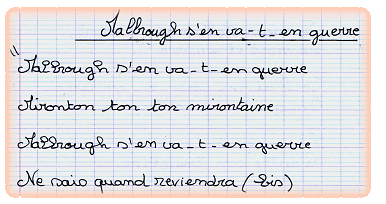 Malbrough s'en va-t-en guerre
" Malbrough s'en va-t-en guerre
Mironton ton ton mirontaine
Malbrough s'en va-t-en guerre
Ne sais quand reviendra (bis)